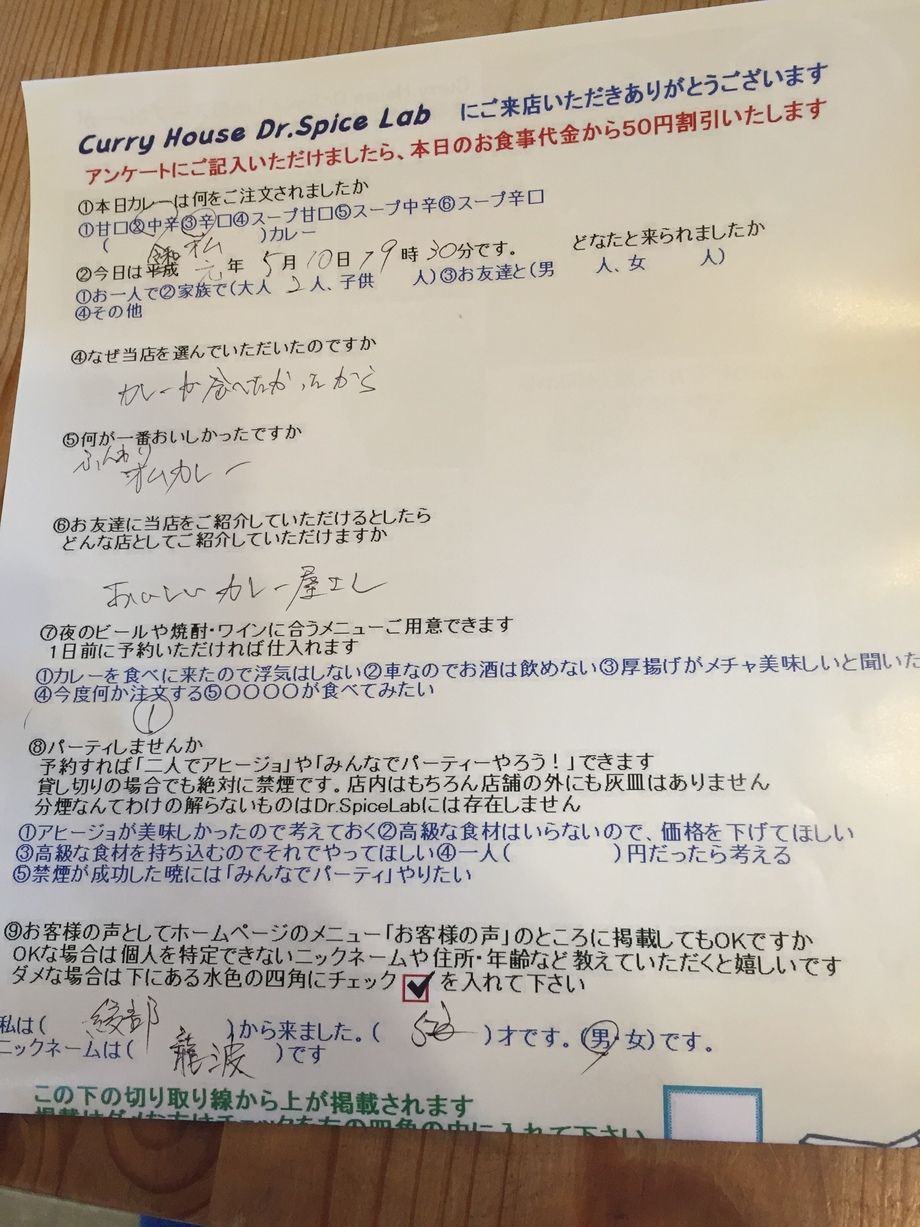 Curry House Dr.Spice Lab にご来店いただきありがとうございます
アンケートにご記入いただけましたら、本日のお食事代金から50円割引いたします
①本日カレーは何をご注文されましたか
①甘口②中辛③辛口④スープ甘口⑤スープ中辛⑥スープ辛口
( オム )カレー
令和
②今日は平成 元 年 5 月 10 日 19 時 30 分です。 どなたと来られましたか
①お一人で②家族で(大人 2 人、子供 人)③お友達と(男 人、女 人)
④その他
④なぜ当店を選んでいただいたのですか
カレーが食べたかったから
⑤何が一番おいしかったですか
ふんわり
オムカレー
⑥お友達に当店をご紹介していただけるとしたら
どんな店としてご紹介していただけますか
おいしいカレー屋さん
⑦夜のビールや焼酎・ワインに合うメニューご用意できます
1日前に予約いただければ仕入れます
①カレーを食べに来たので浮気はしない②車なのでお酒は飲めない③厚揚げがメチャ美味しいと聞いた
④今度何か注文する⑤〇〇〇〇が食べてみたい
①
⑧パーティしませんか
予約すれば「二人でアヒージョ」や「みんなでパーティーやろう！」できます
貸し切りの場合でも絶対に禁煙です。店内はもちろん店舗の外にも灰皿はありません
分煙なんてわけの解らないものはDr.SpiceLabには存在しません
①アヒージョが美味しかったので考えておく②高級な食材はいらないので、価格を下げてほしい
③高級な食材を持ち込むのでそれでやってほしい④一人( )円だったら考える
⑤禁煙が成功した暁には「みんなでパーティ」やりたい
⑨お客様の声としてホームページのメニュー「お客様の声」のところに掲載してもOKですか
OKな場合は個人を特定できないニックネームや住所・年齢など教えていただくと嬉しいです
ダメな場合は下にある水色の四角にチェック を入れて下さい
私は( 綾部 )から来ました。( )才です。(男・女)です。
ニックネームは( 龍波 )です
この下の切り取り線から上が掲載されます
掲載はダメな方はチェックを右の四角の中に入れて下さい